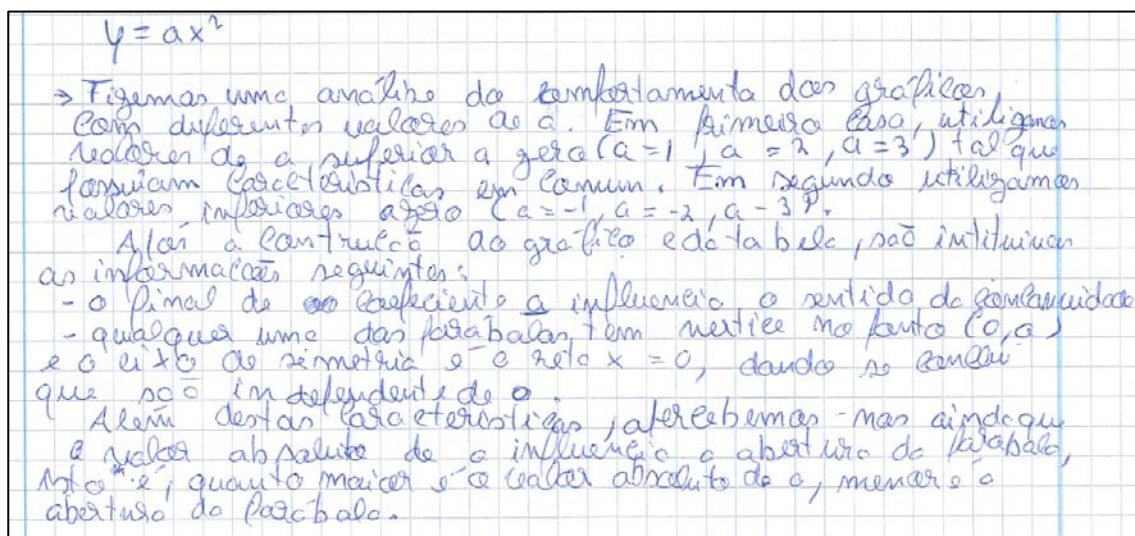 y = ax²
→ Fizemos uma análise do comportamento dos gráficos,
com diferentes valores de a. Em primeiro caso, utilizamos
valores de a superior a zero (a=1, a = 2, a = 3) tal que
possuíam caracteristicas em comum. Em segundo utilizamos
valores inferiores a zero (a = -1, a = -2, a - 3).
Após a contrução do gráfico e da tabela, são
as informações seguintes:
- o sinal de coefeciente a influencia o sentido da concavidade
- qualquer uma das parábolas tem vertice no ponto (0,0)
e o eixo de simetria é a reta x = 0, dando se conclui
que são independente de a.
Além destas caracteristicas, apercebemos-nos ainda que
o valor absoluto de a influencia a abertura da parábola,
isto é, quanto maior é o valor absoluto de a, menor é a
abertura da parábola.